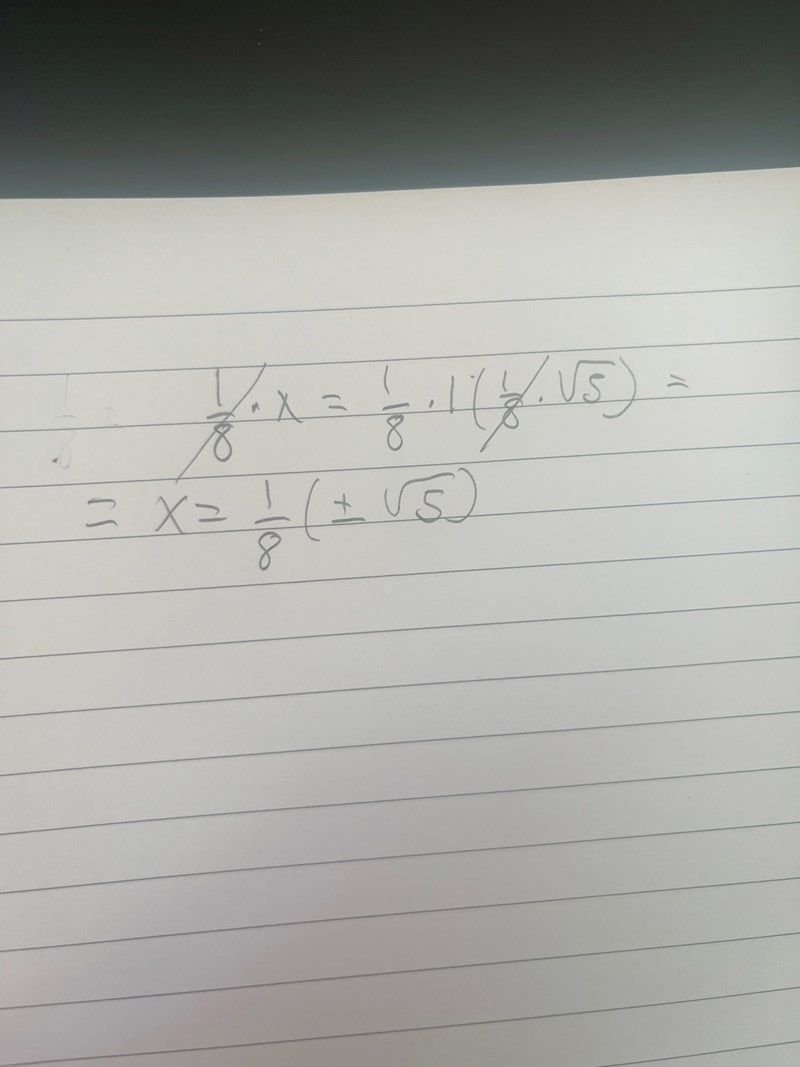 1/8 · x = 1/8 · 1 (1/8 · √5) =
= x = 1/8 (± √5)